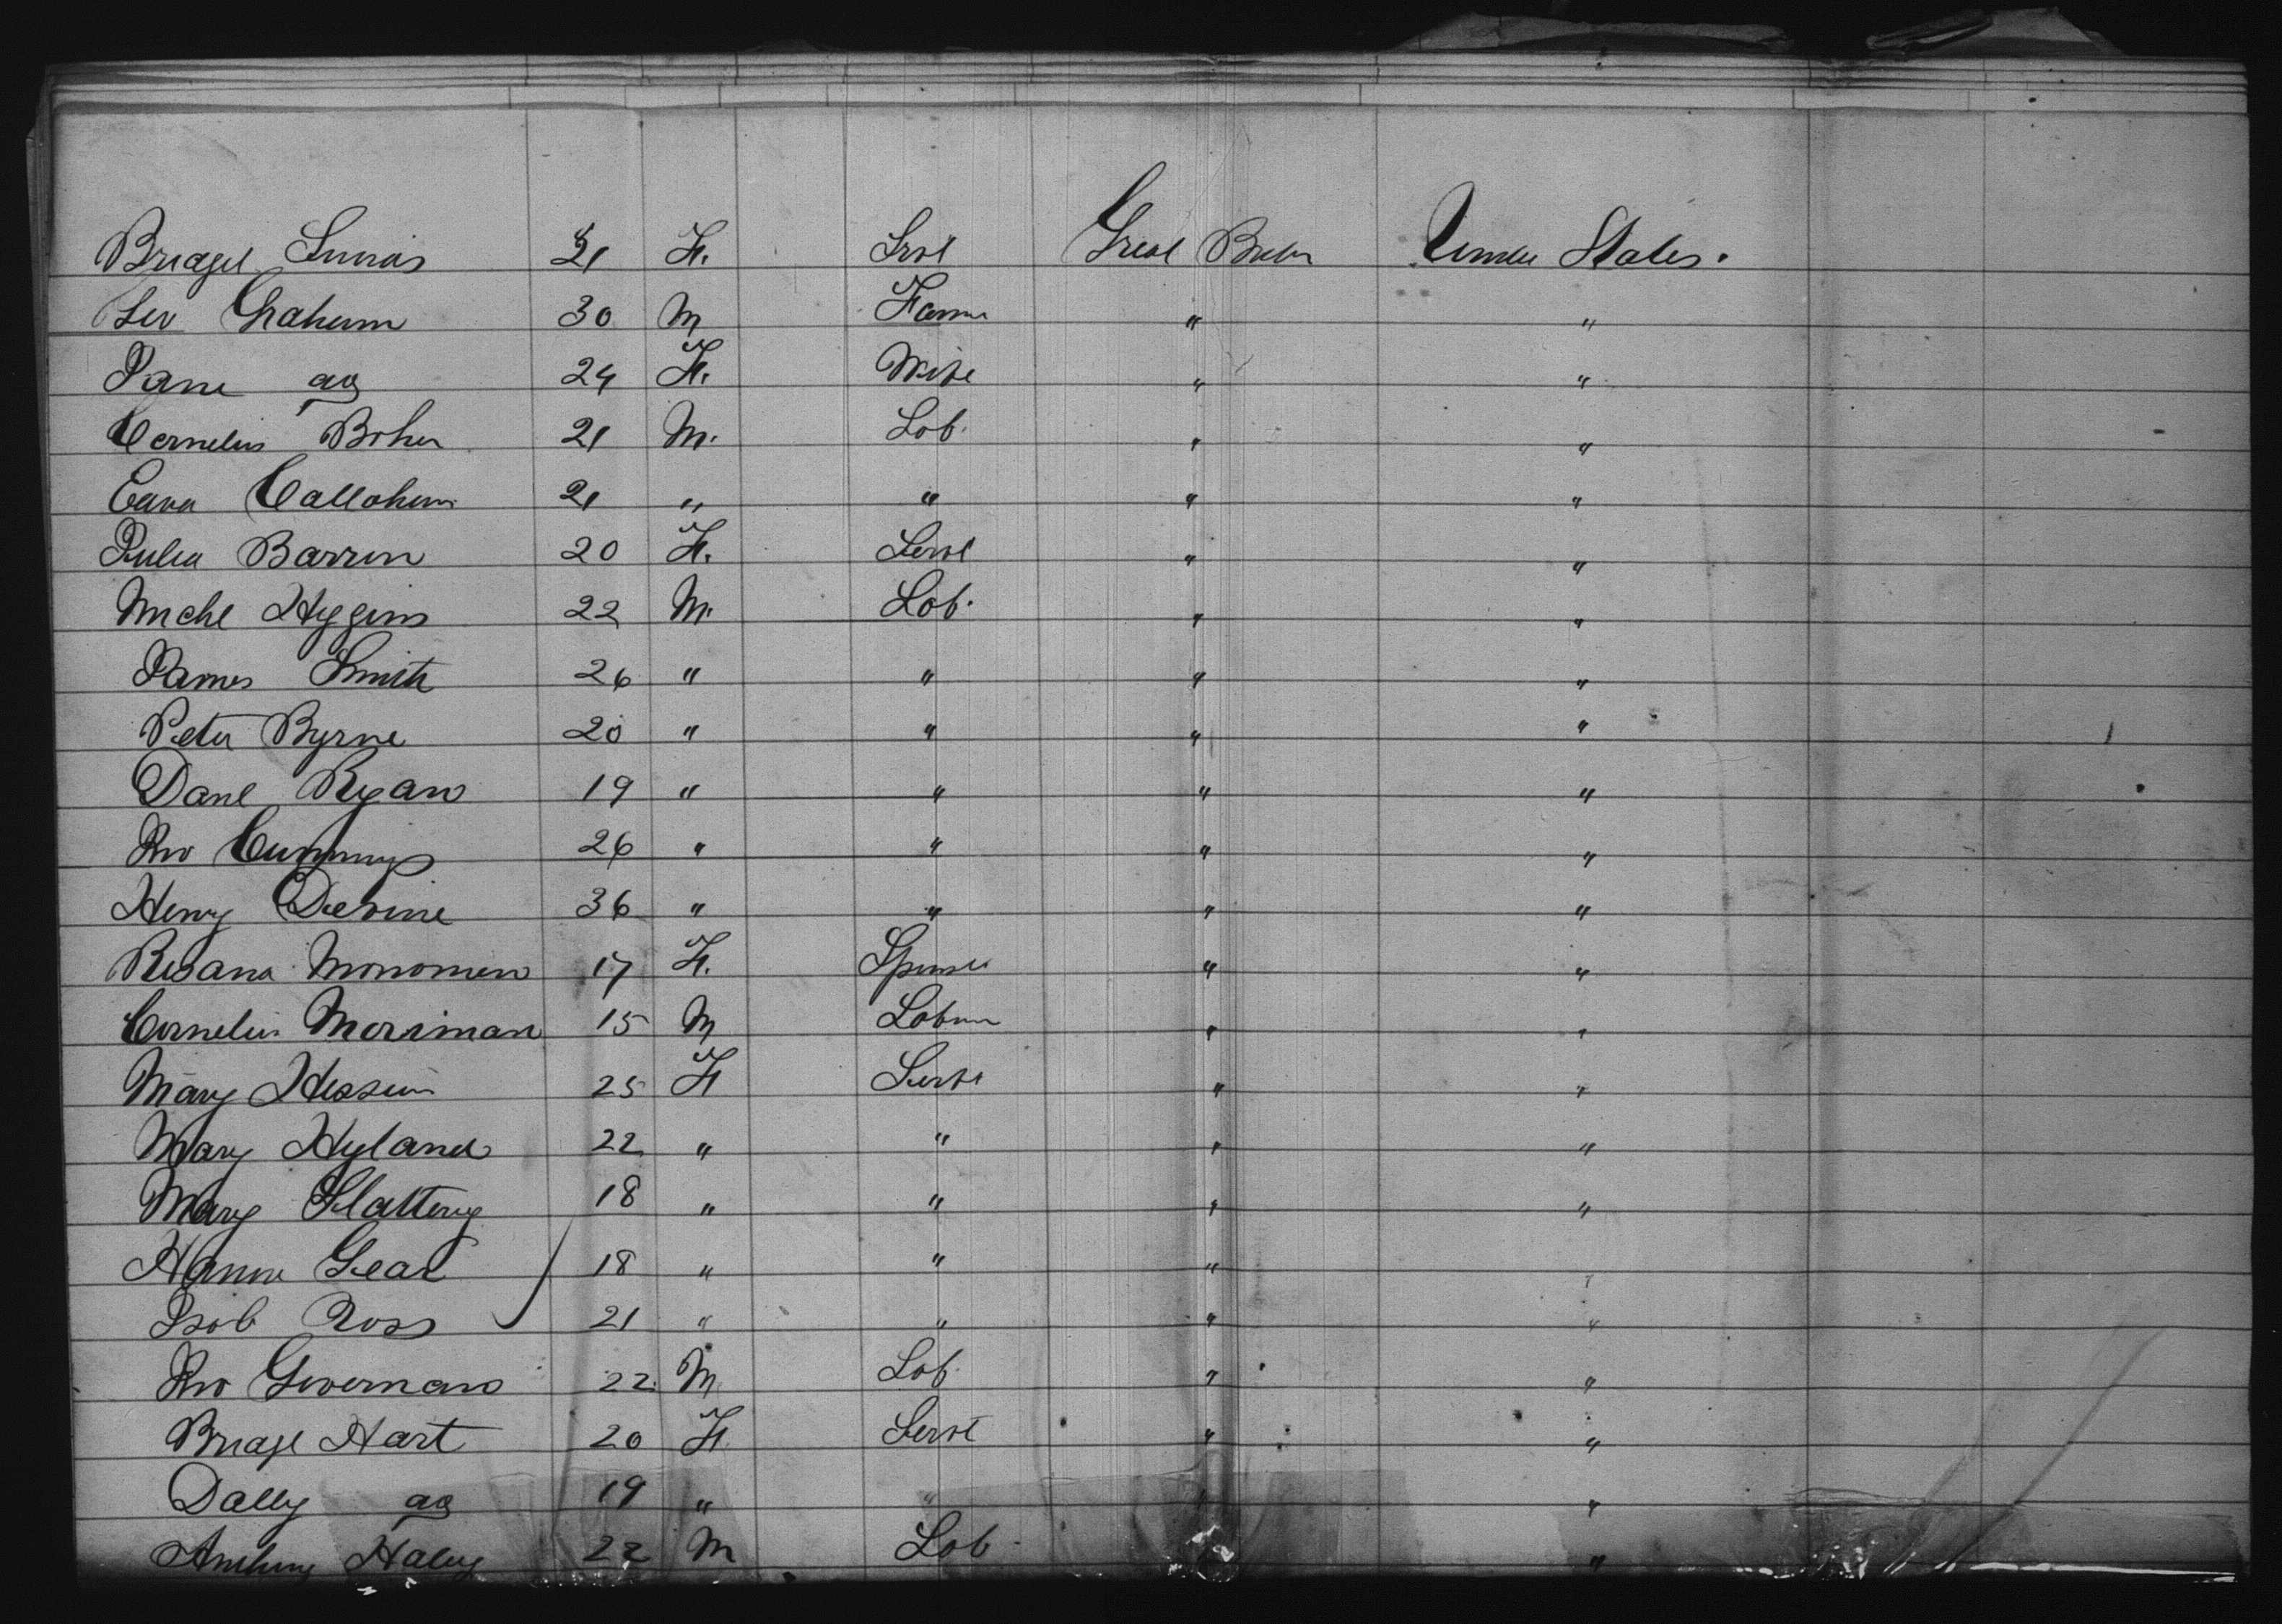 Bridget 21 F. Srvt Great Britn United States.
Geo Graham 30 M Farmr " "
Jane do 24 F. Wife " "
Cornelius Boher 21 M. Lab. " "
Callahan 21 " " " "
Julia Barron 20 F. Servt " "
Michl Higgins 22 M. Lab. " "
James Smith 26 " " " "
Peter Byrne 20 " " " "
Danl Ryan 19 " " " "
Jno Cummings 26 " " " "
Henry Devine 36 " " " "
Rosana 17 F. Spinstr " "
Cornelius Morriman 15 M Labour " "
Mary Hession 25 F Servt " "
Mary Hyland 22 " " " "
Mary Slattery 18 " " " "
Hanna Gear 18 " " " "
Isob Ross 21 " " " "
Jno Governan 22 M Lab. " "
Bridgt Hart 20 F. Servt " "
Dally do 19 " " " "
Anthony Haley 22 M Lab. "